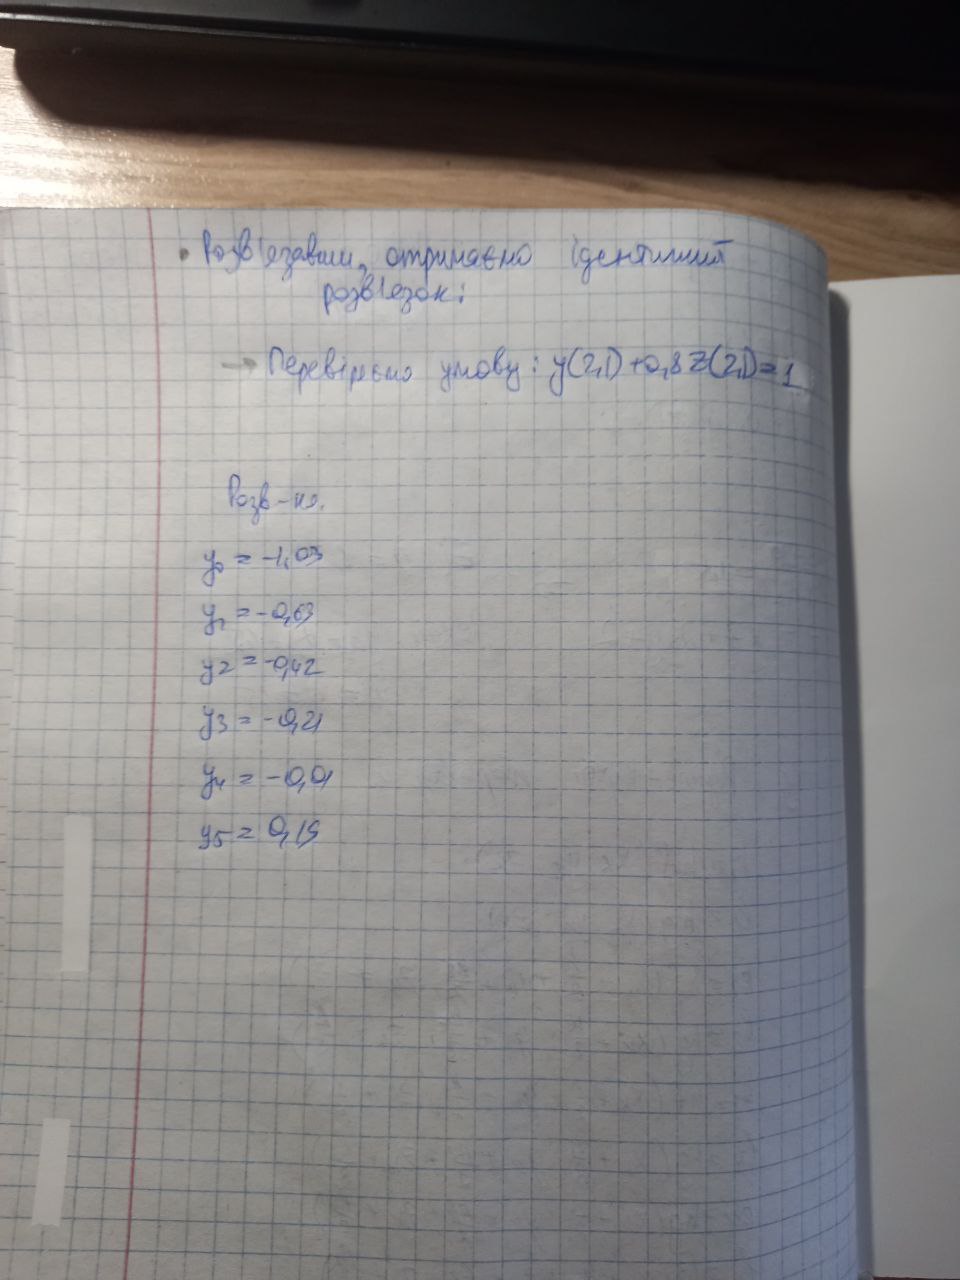 • Розв'язавши, отримаємо ідентичний
розв'язок:
→ Перевіримо умову: y(2,1)+0,8z(2,1)=1
Розв-ня.
y₀ = -1,03
y₁ = -0,63
y₂ = -0,42
y₃ = -0,21
y₄ = -0,01
y₅ = 0,15